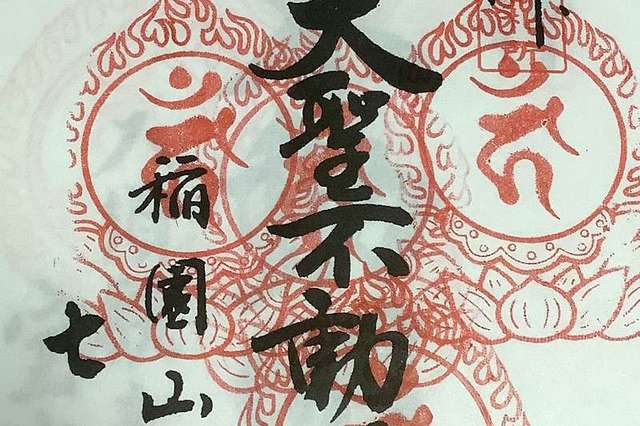 大聖不動
稲園山
七